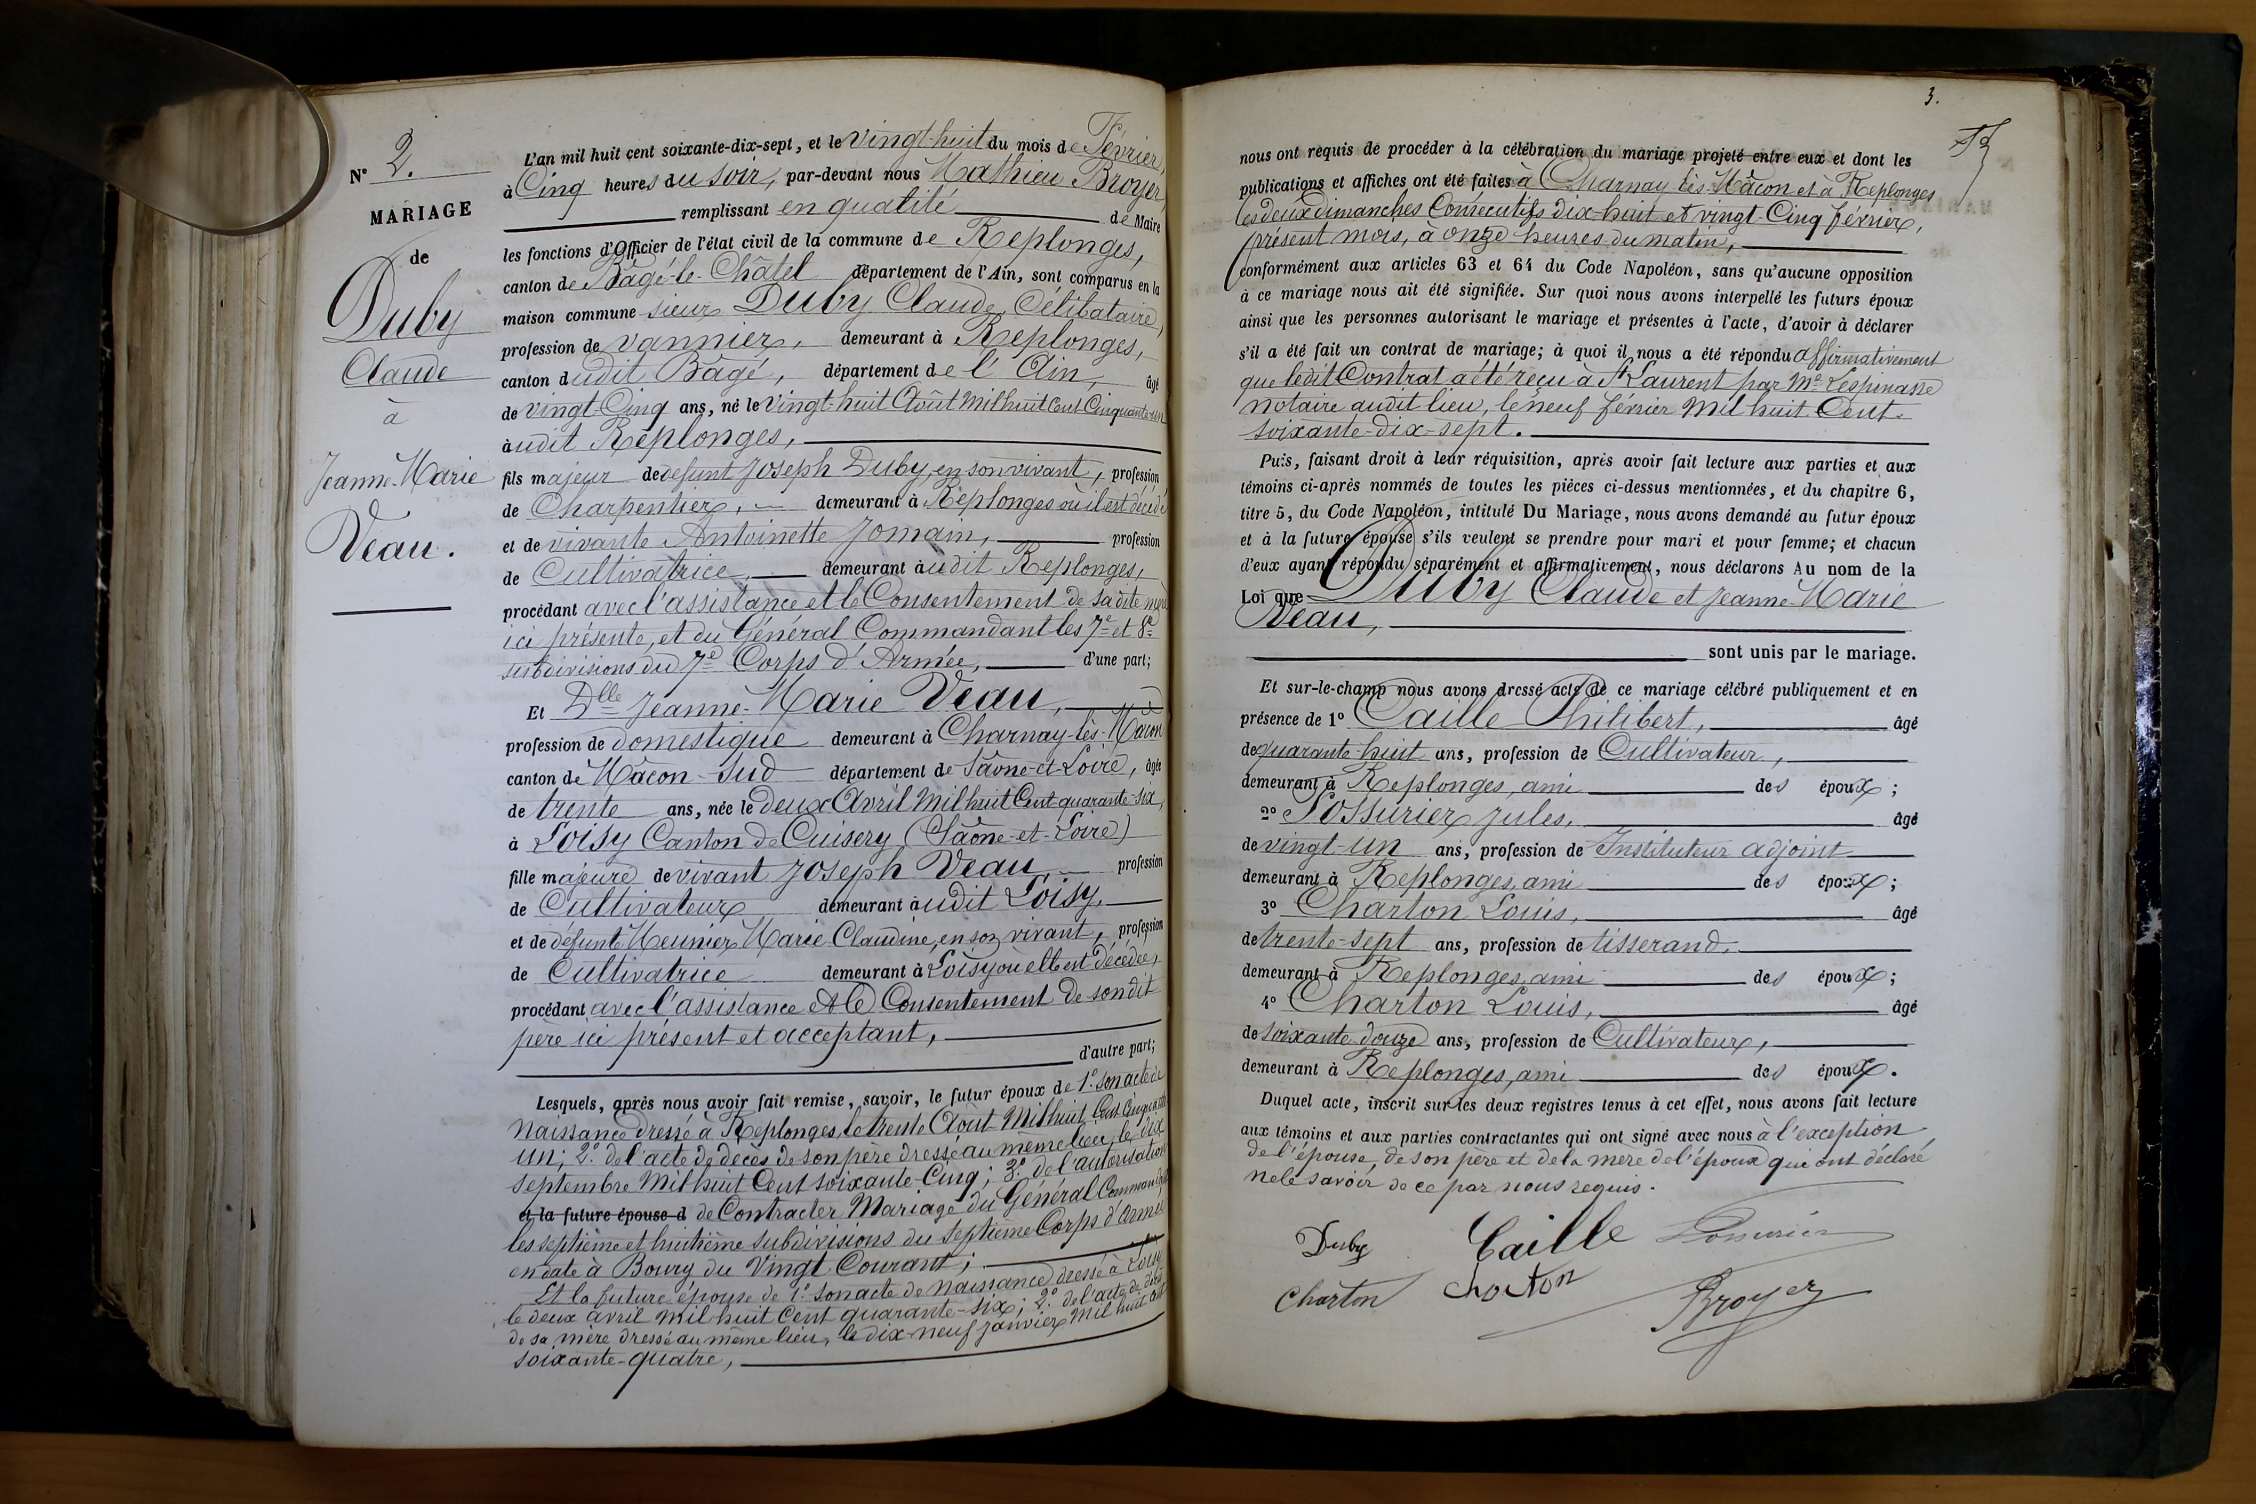 N° 2.
MARIAGE
de
Duby
Claude
à
Jeanne-Marie
Veau.
L'an mil huit cent soixante-dix-sept, et le vingt-huit du mois de Février,
à Cinq heures du soir, par-devant nous Mathieu Broyer,
remplissant en qualité de Maire
les fonctions d'Officier de l'état civil de la commune de Replonges,
canton de Bâgé-le-Châtel département de l'Ain, sont comparus en la
maison commune sieur Duby Claude, Célibataire,
profession de vannier, demeurant à Replonges,
canton dudit Bâgé, département de l'Ain, âgé
de vingt-Cinq ans, né le vingt-huit Août Mil huit Cent Cinquante-un
audit Replonges,
fils majeur de défunt Joseph Duby, en son vivant, profession
de Charpentier, demeurant à Replonges où il est décédé
et de vivante Antoinette Jomain, profession
de Cultivatrice, demeurant audit Replonges,
procédant avec l'assistance et le Consentement de sa dite mère
ici présente, et du Général Commandant les 7e et 8e
subdivisions du 7e Corps d'Armée, d'une part;
Et Dlle Jeanne-Marie Veau,
profession de domestique demeurant à Charnay-lès-Mâcon
canton de Mâcon-Sud département de Saône-et-Loire, âgée
de trente ans, née le deux Avril Mil huit Cent quarante-six,
à Loisy Canton de Cuisery (Saône-et-Loire)
fille majeure de vivant Joseph Veau, profession
de Cultivateur demeurant audit Loisy,
et de défunte Meunier Marie-Claudine, en son vivant, profession
de Cultivatrice demeurant à Loisy où elle est décédée,
procédant avec l'assistance et le Consentement de son dit
père ici présent et acceptant,
d'autre part;
Lesquels, après nous avoir fait remise, savoir, le futur époux de 1° son acte de
Naissance dressé à Replonges, le trente Août Mil huit Cent Cinquante
un; 2° de l'acte de décès de son père dressé au même lieu, le dix
septembre Mil huit Cent soixante-Cinq; 3° de l'autorisation
et la future épouse d de Contracter Mariage du Général Commandant
les septième et huitième subdivisions du septième Corps d'Armée
en date à Bourg du Vingt Courant;
Et la future épouse de 1° son acte de naissance dressé à Loisy
le deux avril Mil huit Cent quarante-six; 2° de l'acte de décès
de sa mère dressé au même lieu, le dix-neuf janvier Mil huit Cent
soixante-quatre,
3.
nous ont requis de procéder à la célébration du mariage projeté entre eux et dont les
publications et affiches ont été faites à Charnay-lès-Mâcon et à Replonges
les deux Dimanches Consécutifs dix-huit et vingt-Cinq février,
présent mois, à onze heures du matin,
conformément aux articles 63 et 64 du Code Napoléon, sans qu'aucune opposition
à ce mariage nous ait été signifiée. Sur quoi nous avons interpellé les futurs époux
ainsi que les personnes autorisant le mariage et présentes à l'acte, d'avoir à déclarer
s'il a été fait un contrat de mariage; à quoi il nous a été répondu affirmativement
que ledit Contrat a été reçu à St Laurent par Me Lespinasse
notaire audit lieu, le neuf février Mil huit Cent-
soixante-dix-sept.
Puis, faisant droit à leur réquisition, après avoir fait lecture aux parties et aux
témoins ci-après nommés de toutes les pièces ci-dessus mentionnées, et du chapitre 6,
titre 5, du Code Napoléon, intitulé Du Mariage, nous avons demandé au futur époux
et à la future épouse s'ils veulent se prendre pour mari et pour femme; et chacun
d'eux ayant répondu séparément et affirmativement, nous déclarons Au nom de la
Loi que Duby Claude et Jeanne-Marie
Veau,
sont unis par le mariage.
Et sur-le-champ nous avons dressé acte de ce mariage célébré publiquement et en
présence de 1° Caille Philibert, âgé
de quarante-huit ans, profession de Cultivateur,
demeurant à Replonges, ami des époux;
2° Possurier Jules, âgé
de vingt-un ans, profession de Instituteur adjoint
demeurant à Replonges, ami des époux;
3° Charton Louis, âgé
de trente-sept ans, profession de tisserand,
demeurant à Replonges, ami des époux;
4° Charton Louis, âgé
de soixante-douze ans, profession de Cultivateur,
demeurant à Replonges, ami des époux.
Duquel acte, inscrit sur les deux registres tenus à cet effet, nous avons fait lecture
aux témoins et aux parties contractantes qui ont signé avec nous à l'exception
de l'épouse, de son père et de la mère de l'époux qui ont déclaré
ne le savoir de ce par nous requis.
Duby Caille Possurier
Charton Charton Broyer